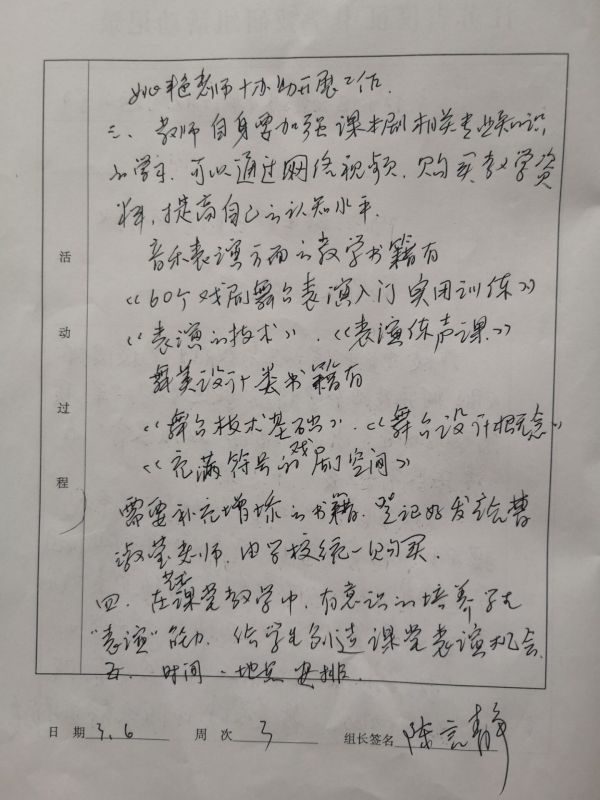 艳老师+协助开展工作.
三、教师自身要加强课本剧相关专业知识
的学习.可以通过网络视频、购买教学资
料,提高自己的认知水平.
音乐表演方面的教学书籍有
《60个戏剧舞台表演入门实用训练》
《表演的技术》.《表演练声课》
舞美设计类书籍有
《舞台技术基础》.《舞台设计概念》
《充满符号的戏剧空间》
需要补充增添的书籍.登记好发给曹
淑莹老师,由学校统一购买.
四.在艺术课堂教学中,有意识的培养学生
"表演"能力.给学生创造课堂表演机会.
五.时间、地点安排.
活动过程
日期 3.6 周次 3 组长签名 陈静